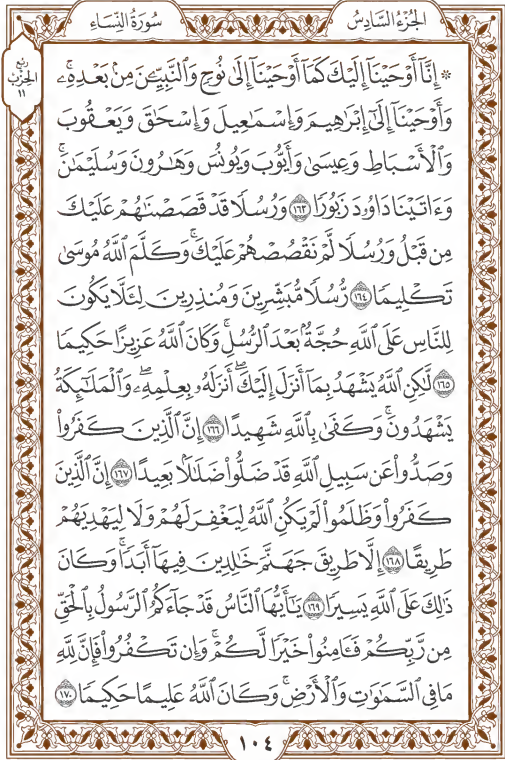 الجُزْءُ السَّادِسُ
سُورَةُ النِّسَاءِ
رُبْعُ
الحِزْبِ
١١
۞ إِنَّآ أَوْحَيْنَآ إِلَيْكَ كَمَآ أَوْحَيْنَآ إِلَىٰ نُوحٍ وَٱلنَّبِيِّـۧنَ مِنۢ بَعْدِهِۦۚ
وَأَوْحَيْنَآ إِلَىٰٓ إِبْرَٰهِيمَ وَإِسْمَٰعِيلَ وَإِسْحَٰقَ وَيَعْقُوبَ
وَٱلْأَسْبَاطِ وَعِيسَىٰ وَأَيُّوبَ وَيُونُسَ وَهَٰرُونَ وَسُلَيْمَٰنَۚ
وَءَاتَيْنَا دَاوُۥدَ زَبُورًا ١٦٣ وَرُسُلًا قَدْ قَصَصْنَٰهُمْ عَلَيْكَ
مِن قَبْلُ وَرُسُلًا لَّمْ نَقْصُصْهُمْ عَلَيْكَۚ وَكَلَّمَ ٱللَّهُ مُوسَىٰ
تَكْلِيمًا ١٦٤ رُّسُلًا مُّبَشِّرِينَ وَمُنذِرِينَ لِئَلَّا يَكُونَ
لِلنَّاسِ عَلَى ٱللَّهِ حُجَّةٌۢ بَعْدَ ٱلرُّسُلِۚ وَكَانَ ٱللَّهُ عَزِيزًا حَكِيمًا
١٦٥ لَّٰكِنِ ٱللَّهُ يَشْهَدُ بِمَآ أَنزَلَ إِلَيْكَۖ أَنزَلَهُۥ بِعِلْمِهِۦۖ وَٱلْمَلَٰٓئِكَةُ
يَشْهَدُونَۚ وَكَفَىٰ بِٱللَّهِ شَهِيدًا ١٦٦ إِنَّ ٱلَّذِينَ كَفَرُوا۟
وَصَدُّوا۟ عَن سَبِيلِ ٱللَّهِ قَدْ ضَلُّوا۟ ضَلَٰلًۢا بَعِيدًا ١٦٧ إِنَّ ٱلَّذِينَ
كَفَرُوا۟ وَظَلَمُوا۟ لَمْ يَكُنِ ٱللَّهُ لِيَغْفِرَ لَهُمْ وَلَا لِيَهْدِيَهُمْ
طَرِيقًا ١٦٨ إِلَّا طَرِيقَ جَهَنَّمَ خَٰلِدِينَ فِيهَآ أَبَدًاۚ وَكَانَ
ذَٰلِكَ عَلَى ٱللَّهِ يَسِيرًا ١٦٩ يَٰٓأَيُّهَا ٱلنَّاسُ قَدْ جَآءَكُمُ ٱلرَّسُولُ بِٱلْحَقِّ
مِن رَّبِّكُمْ فَـَٔامِنُوا۟ خَيْرًا لَّكُمْۚ وَإِن تَكْفُرُوا۟ فَإِنَّ لِلَّهِ
مَا فِى ٱلسَّمَٰوَٰتِ وَٱلْأَرْضِۚ وَكَانَ ٱللَّهُ عَلِيمًا حَكِيمًا ١٧٠
١٠٤